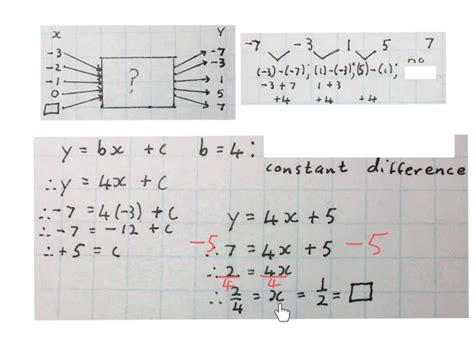 x y
-3 -7
-2 -3
-1 ? 1
0 5
□ 7
-7 -3 1 5 7
(-3)-(-7); (1)-(-3); (5)-(1); no
-3+7 1+3
+4 +4 +4
y = bx + c b = 4:
constant difference
∴y = 4x + c
∴-7 = 4(-3) + c
∴-7 = -12 + c
∴+5 = c
y = 4x + 5
-5 ∴7 = 4x + 5 -5
∴2/4 = 4x/4
∴2/4 = x = 1/2 = □